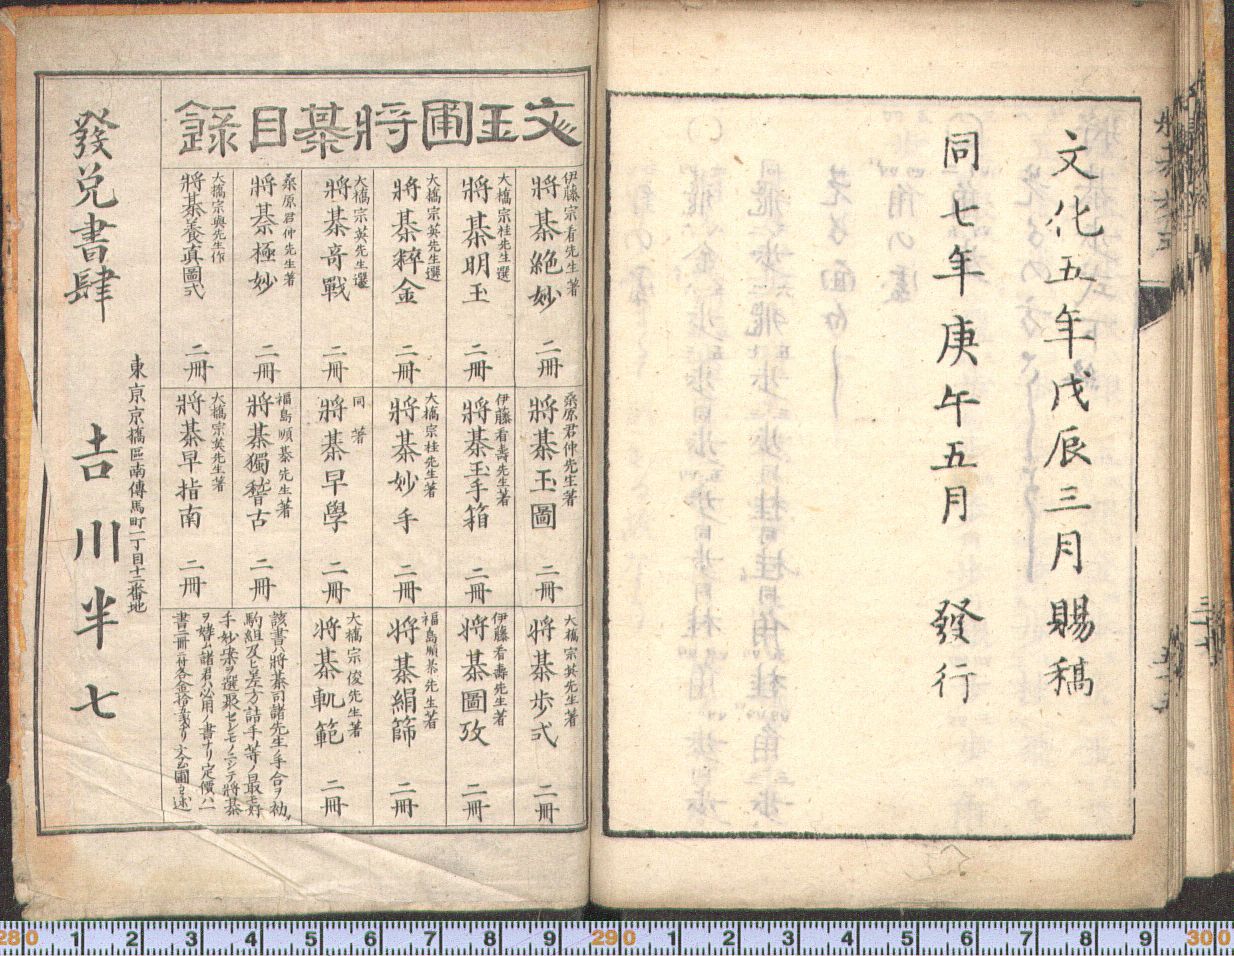 文化五年戊辰三月賜稿
同七年庚午五月 發行
文玉圃將棊目錄
伊藤宗看先生著
將棊絶妙 二冊
大橋宗桂先生選
將棊明玉 二冊
大橋宗英先生選
將棊粹金 二冊
大橋宗英先生選
將棊奇戰 二冊
桑原君仲先生著
將棊極妙 二冊
大橋宗與先生作
將棊養真圖式 二冊
桑原君仲先生著
將棊玉圖 二冊
伊藤看壽先生著
將棊玉手箱 二冊
大橋宗桂先生著
將棊妙手 二冊
同著
將棊早學 二冊
福島順棊先生著
將棊獨稽古 二冊
大橋宗英先生著
將棊早指南 二冊
大橋宗英先生著
將棊歩式 二冊
伊藤看壽先生著
將棊圖攷 二冊
福島順棊先生著
將棊絹篩 二冊
大橋宗俊先生著
將棊軌範 二冊
該書ハ將棊司諸先生手合ヲ初
駒組及ヒ差方詰手等ノ最モ好
手妙案ヲ選取セシモノニシテ將棊
ヲ嗜ム諸君ノ必用ノ書ナリ定價ハ一
書二冊ニ付各金拾五錢ナリ
東京京橋區南傳馬町一丁目十二番地
發兌書肆 吉川半七
280 1 2 3 4 5 6 7 8 9 290 1 2 3 4 5 6 7 8 9 300